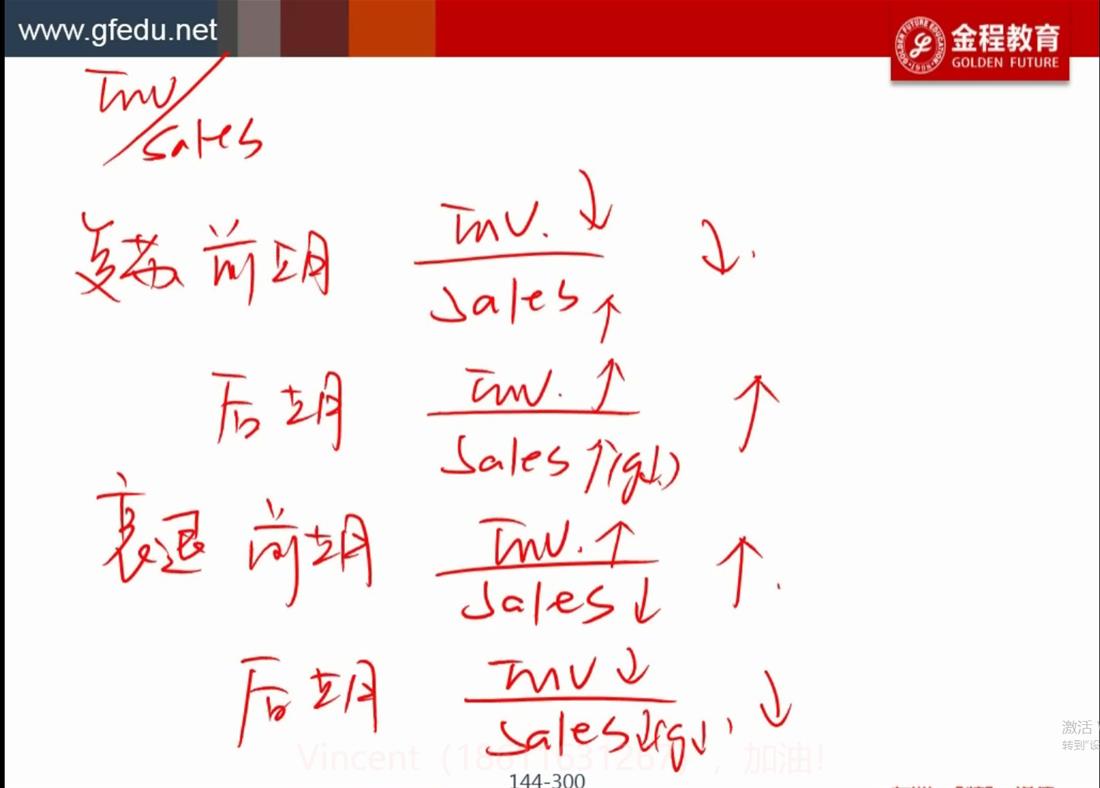 www.gfedu.net
金程教育
GOLDEN FUTURE
Inv/Sales
复苏 前期 Inv. ↓ / Sales ↑ ↓.
后期 Inv. ↑ / Sales ↑(g↓) ↑
衰退 前期 Inv. ↑ / Sales ↓ ↑.
后期 Inv ↓ / Sales ↓(g↓) ↓
激活
转到"设
Vincent ，加油!
144-300